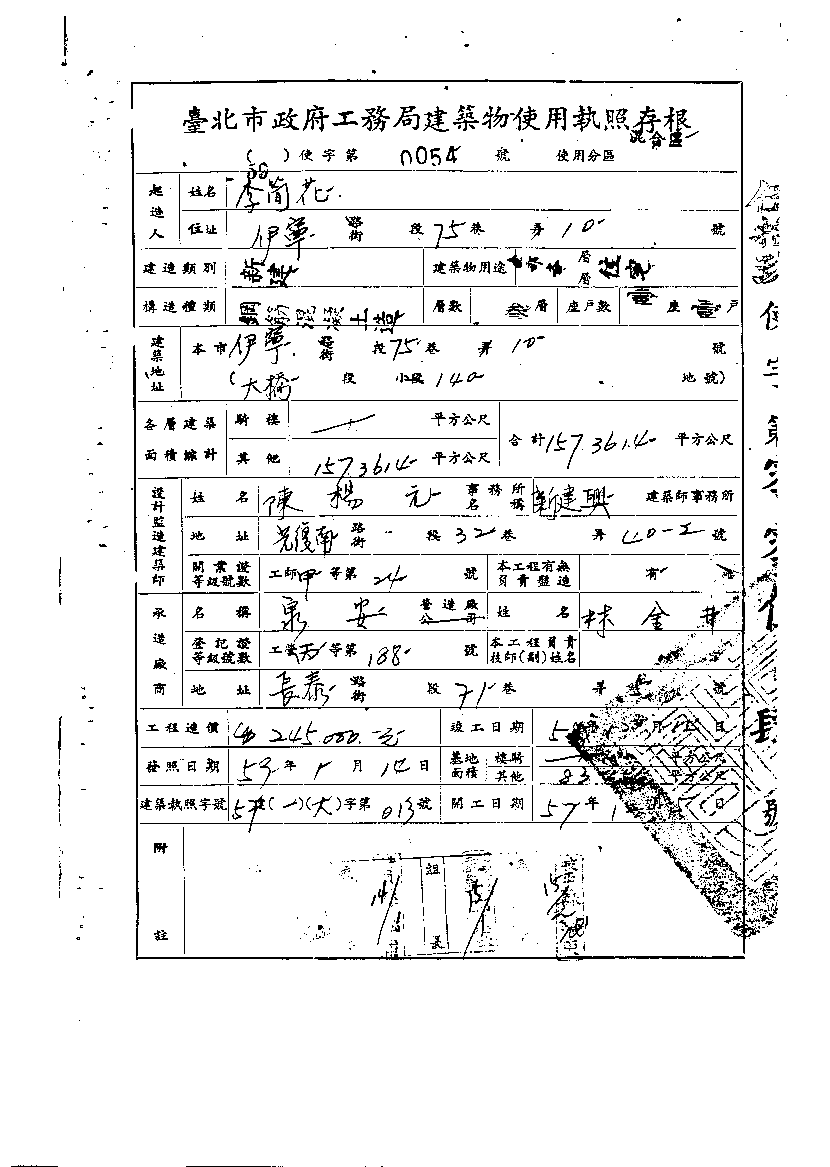 臺北市政府工務局建築物使用執照存根
( )使字第 0054 號 使用分區
起造人 姓名 李簡花
住址 伊寧 路街 段 75 巷 弄 10 號
建造類別 新建 建築物用途 層層 住宅
構造種類 鋼筋混凝土造 層數 層 座戶數 壹 座 壹 戶
建築地址 本市 伊寧 路街 段 75 巷 弄 10 號
(大橋 段 小段 140 地號)
各層建築面積總計 騎樓 平方公尺 合計 157.3614 平方公尺
其他 157.3614 平方公尺
設計監造建築師 姓名 陳楊元 事務所名稱 新建興 建築師事務所
地址 光復南 路街 段 32 巷 弄 40-2 號
開業證等級號數 工師甲等第 24 號 本工程有無負責監造 有
承造廠商 名稱 泉安 營造廠公司 姓名 林金井
登記證等級號數 工業丙等第 188 號 本工程負責技師(副)姓名
地址 長泰 路街 段 71 巷 弄 號
工程造價 245,000.元 竣工日期 月 日
發照日期 59 年 1 月 14 日 基地面積 樓騎 平方公尺
其他 83 平方公尺
建築執照字號 57建(一)(大)字第 013 號 開工日期 57 年 1 日
附註
組長